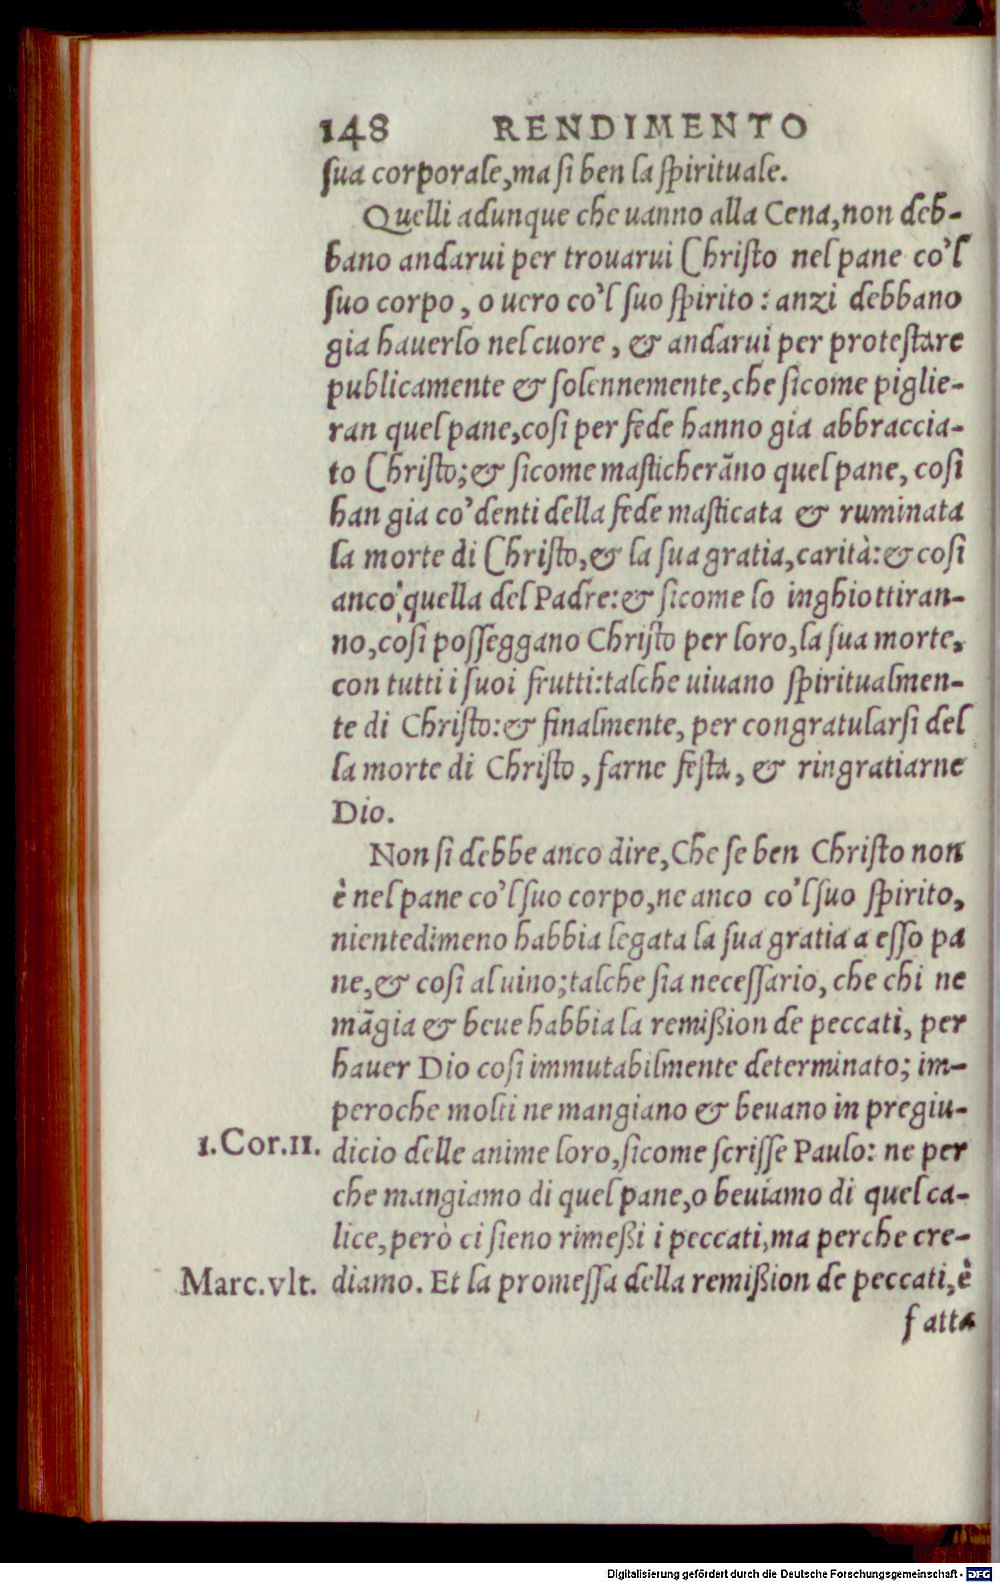 148 RENDIMENTO
ſua corporale,ma ſi ben la ſpirituale.
Quelli adunque che uanno alla Cena,non deb-
bano andarui per trouarui Chriſto nel pane co'l
ſuo corpo, o uero co'l ſuo ſpirito: anzi debbano
gia hauerlo nel cuore, & andarui per proteſtare
publicamente & ſolennemente,che ſicome piglie-
ran quel pane,coſi per fede hanno gia abbraccia-
to Chriſto;& ſicome maſticherāno quel pane, coſi
han gia co' denti della fede maſticata & ruminata
la morte di Chriſto,& la ſua gratia,carità:& coſi
anco quella del Padre:& ſicome lo inghiottiran-
no,coſi poſſeggano Chriſto per loro,la ſua morte,
con tutti i ſuoi frutti:talche uiuano ſpiritualmen-
te di Chriſto:& finalmente, per congratularſi del
la morte di Chriſto, farne feſta, & ringratiarne
Dio.
Non ſi debbe anco dire,Che ſe ben Chriſto non
è nel pane co'l ſuo corpo,ne anco co'l ſuo ſpirito,
nientedimeno habbia legata la ſua gratia a eſſo pa
ne,& coſi al uino;talche ſia neceſſario, che chi ne
māgia & beue habbia la remißion de peccati, per
hauer Dio coſi immutabilmente determinato; im-
peroche molti ne mangiano & beuano in pregiu-
1.Cor.11. dicio delle anime loro,ſicome ſcriſſe Paulo: ne per
che mangiamo di quel pane,o beuiamo di quel ca-
lice,però ci ſieno rimeßi i peccati,ma perche cre-
Marc.vlt. diamo. Et la promeſſa della remißion de peccati,è
fatta
Digitalisierung gefördert durch die Deutsche Forschungsgemeinschaft - DFG